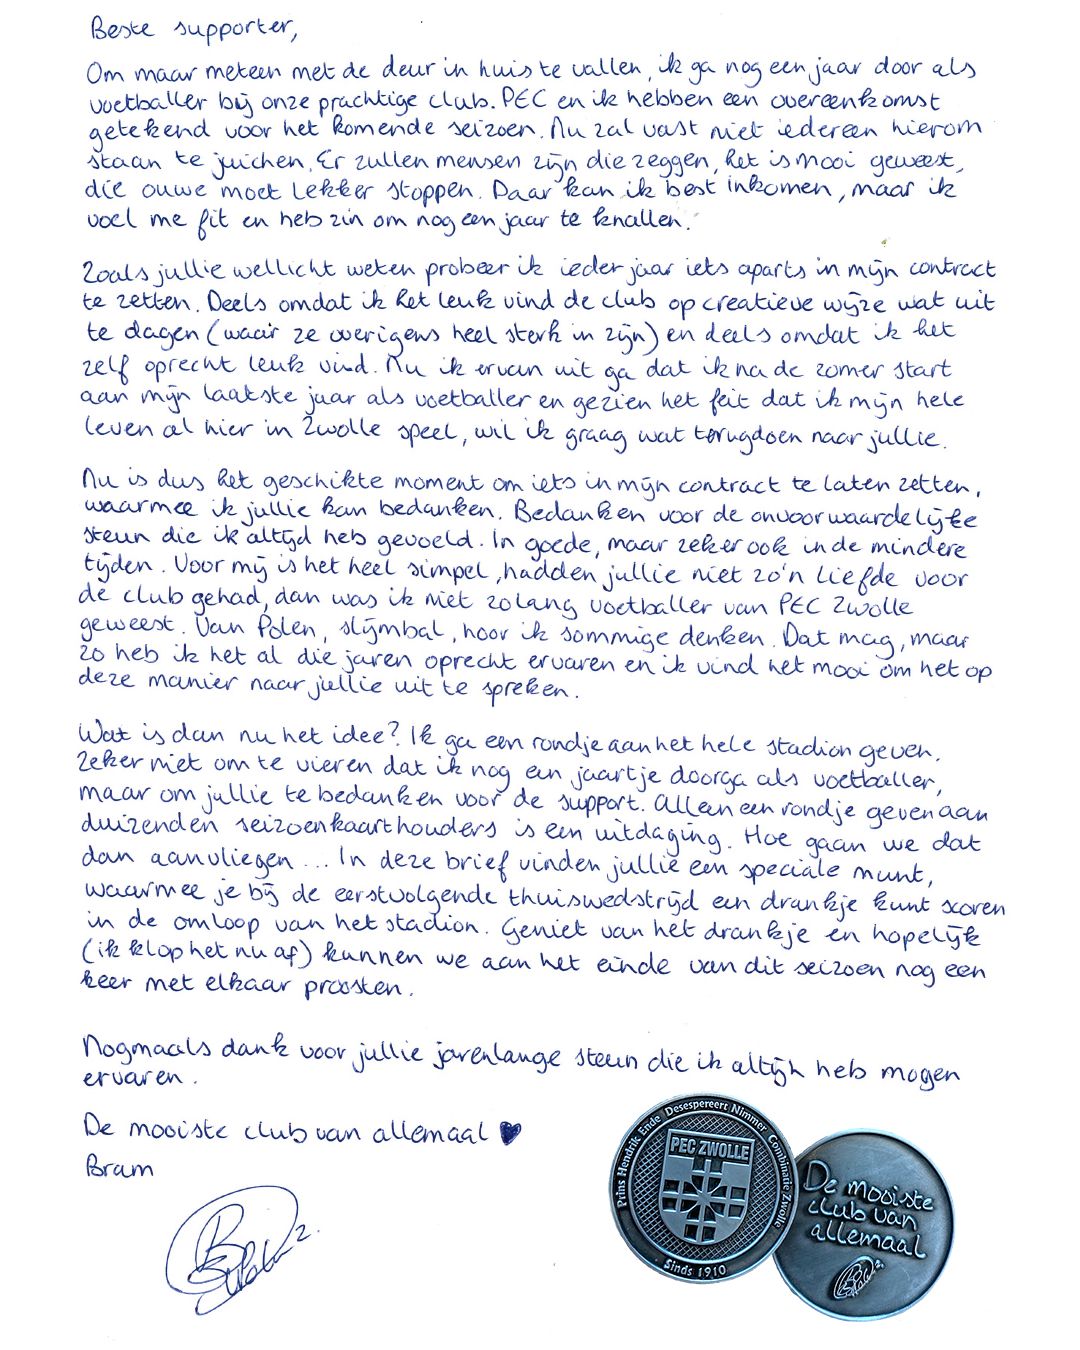 Beste supporter,
Om maar meteen met de deur in huis te vallen, ik ga nog een jaar door als
voetballer bij onze prachtige club. PEC en ik hebben een overeenkomst
getekend voor het komende seizoen. Nu zal vast niet iedereen hierom
staan te juichen. Er zullen mensen zijn die zeggen, het is mooi geweest,
die ouwe moet lekker stoppen. Daar kan ik best inkomen, maar ik
voel me fit en heb zin om nog een jaar te knallen.
Zoals jullie wellicht weten probeer ik ieder jaar iets aparts in mijn contract
te zetten. Deels omdat ik het leuk vind de club op creatieve wijze wat uit
te dagen (waar ze overigens heel sterk in zijn) en deels omdat ik het
zelf oprecht leuk vind. Nu ik ervan uit ga dat ik na de zomer start
aan mijn laatste jaar als voetballer en gezien het feit dat ik mijn hele
leven al hier in Zwolle speel, wil ik graag wat terugdoen naar jullie.
Nu is dus het geschikte moment om iets in mijn contract te laten zetten,
waarmee ik jullie kan bedanken. Bedanken voor de onvoorwaardelijke
steun die ik altijd heb gevoeld. In goede, maar zeker ook in de mindere
tijden. Voor mij is het heel simpel, hadden jullie niet zo'n liefde voor
de club gehad, dan was ik niet zolang voetballer van PEC Zwolle
geweest. Van Polen, slijmbal, hoor ik sommige denken. Dat mag, maar
zo heb ik het al die jaren oprecht ervaren en ik vind het mooi om het op
deze manier naar jullie uit te spreken.
Wat is dan nu het idee? Ik ga een rondje aan het hele stadion geven.
Zeker niet om te vieren dat ik nog een jaartje doorga als voetballer,
maar om jullie te bedanken voor de support. Alleen een rondje geven aan
duizenden seizoenkaarthouders is een uitdaging. Hoe gaan we dat
dan aanvliegen ... In deze brief vinden jullie een speciale munt,
waarmee je bij de eerstvolgende thuiswedstrijd een drankje kunt scoren
in de omloop van het stadion. Geniet van het drankje en hopelijk
(ik klop het nu af) kunnen we aan het einde van dit seizoen nog een
keer met elkaar proosten.
Nogmaals dank voor jullie jarenlange steun die ik altijh heb mogen
ervaren.
De mooiste club van allemaal ♥
Bram
Prins Hendrik Ende Desespereert Nimmer Combinatie Zwolle
PEC ZWOLLE
Sinds 1910
De mooiste
club van
allemaal